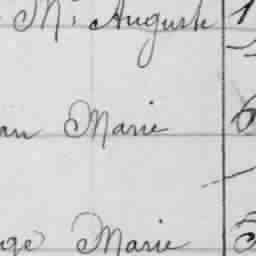 Mr Auguste 1
an Marie 6
ge Marie 5